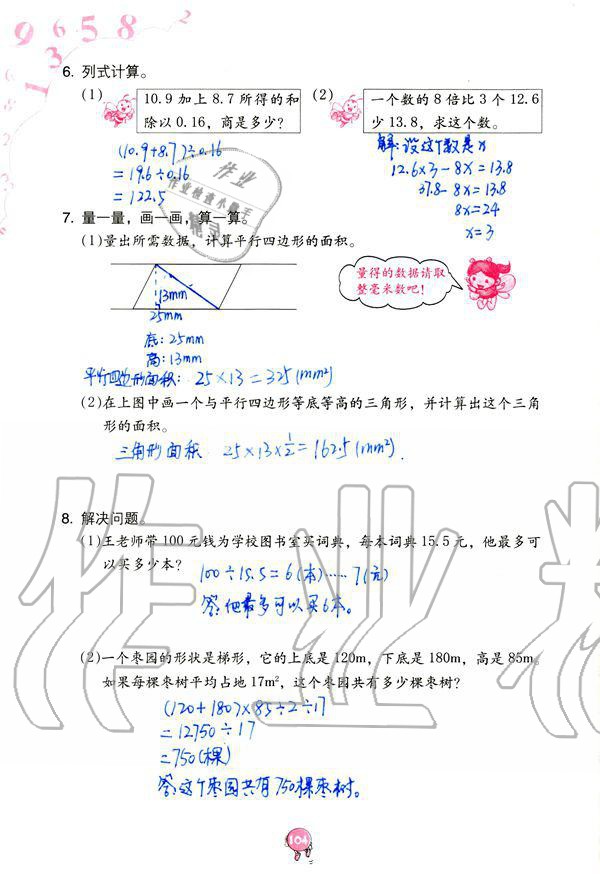 9 6 5 8 2
1 3
6. 列式计算。
(1) 10.9 加上 8.7 所得的和
除以 0.16，商是多少?
(10.9+8.7)÷0.16
=19.6÷0.16
=122.5
(2) 一个数的 8 倍比 3 个 12.6
少 13.8，求这个数。
解:设这个数是x
12.6×3-8x=13.8
37.8-8x=13.8
8x=24
x=3
作业
作业检查小助手
7. 量一量，画一画，算一算。
(1)量出所需数据，计算平行四边形的面积。
13mm
25mm
底: 25mm
高: 13mm
量得的数据请取
整毫米数吧!
平行四边形面积: 25×13=325(mm²)
(2)在上图中画一个与平行四边形等底等高的三角形，并计算出这个三角
形的面积。
三角形面积: 25×13×1/2=162.5(mm²).
作业
8. 解决问题。
(1)王老师带 100 元钱为学校图书室买词典，每本词典 15.5 元，他最多可
以买多少本?
100÷15.5=6(本)……7(元)
答:他最多可以买6本。
(2)一个枣园的形状是梯形，它的上底是 120m，下底是 180m，高是 85m。
如果每棵枣树平均占地 17m²，这个枣园共有多少棵枣树?
(120+180)×85÷2÷17
=12750÷17
=750(棵)
答:这个枣园共有750棵枣树。
104